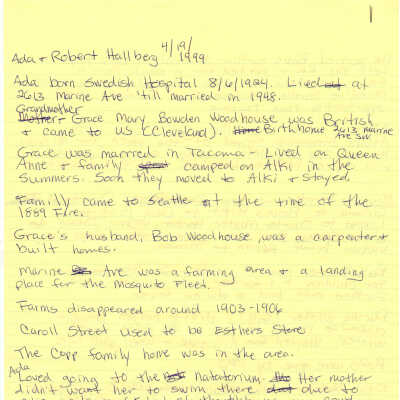 1
4/19/1999
Ada & Robert Hallberg
Ada born Swedish Hospital 8/6/1924. Lived at
2613 Marine Ave 'till married in 1948.
Grandmother
Grace Mary Bowden Woodhouse was British
& came to US (Cleveland). Birth home 2613 Marine
Ave SW
Grace was married in Tacoma - Lived on Queen
Anne & family camped on Alki in the
Summers. Soon they moved to Alki & stayed.
Family came to Seattle at the time of the
1889 Fire.
Grace's husband, Bob Woodhouse, was a carpenter &
built homes.
Marine Ave was a farming area & a landing
place for the Mosquito Fleet.
Farms disappeared around 1903-1906
Caroll Street used to be Esthers Store
The Copp family home was in the area.
Ada
Loved going to the natatorium. Her mother
didn't want her to swim there due to